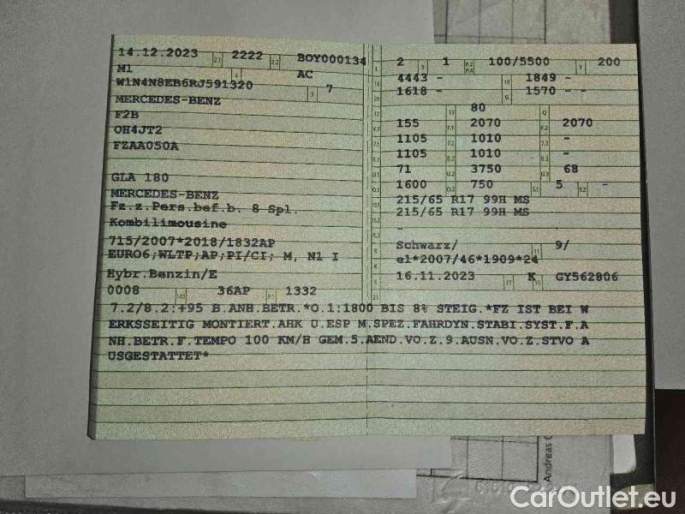 14.12.2023 2222 BOY000134
M1 AC
W1N4N8EB6RJ591320 7
MERCEDES-BENZ
F2B
OH4JT2
FZAA050A
GLA 180
MERCEDES-BENZ
Fz.z.Pers.bef.b. 8 Spl.
Kombilimousine
715/2007*2018/1832AP
EURO6;WLTP;AP;PI/CI; M, N1 I
Hybr.Benzin/E
0008 36AP 1332
2 1 100/5500 200
4443 - 1849 -
1618 - 1570 - -
80
155 2070 2070
1105 1010 -
1105 1010 -
71 3750 68
1600 750 5 -
215/65 R17 99H MS
215/65 R17 99H MS
-
-
Schwarz/ 9/
e1*2007/46*1909*24
16.11.2023 K GY562806
7.2/8.2:+95 B.ANH.BETR.*O.1:1800 BIS 8% STEIG.*FZ IST BEI W
ERKSSEITIG MONTIERT.AHK U.ESP M.SPEZ.FAHRDYN.STABI.SYST.F.A
NH.BETR.F.TEMPO 100 KM/H GEM.5.AEND.VO.Z.9.AUSN.VO.Z.STVO A
USGESTATTET*
Andreas
CarOutlet.eu